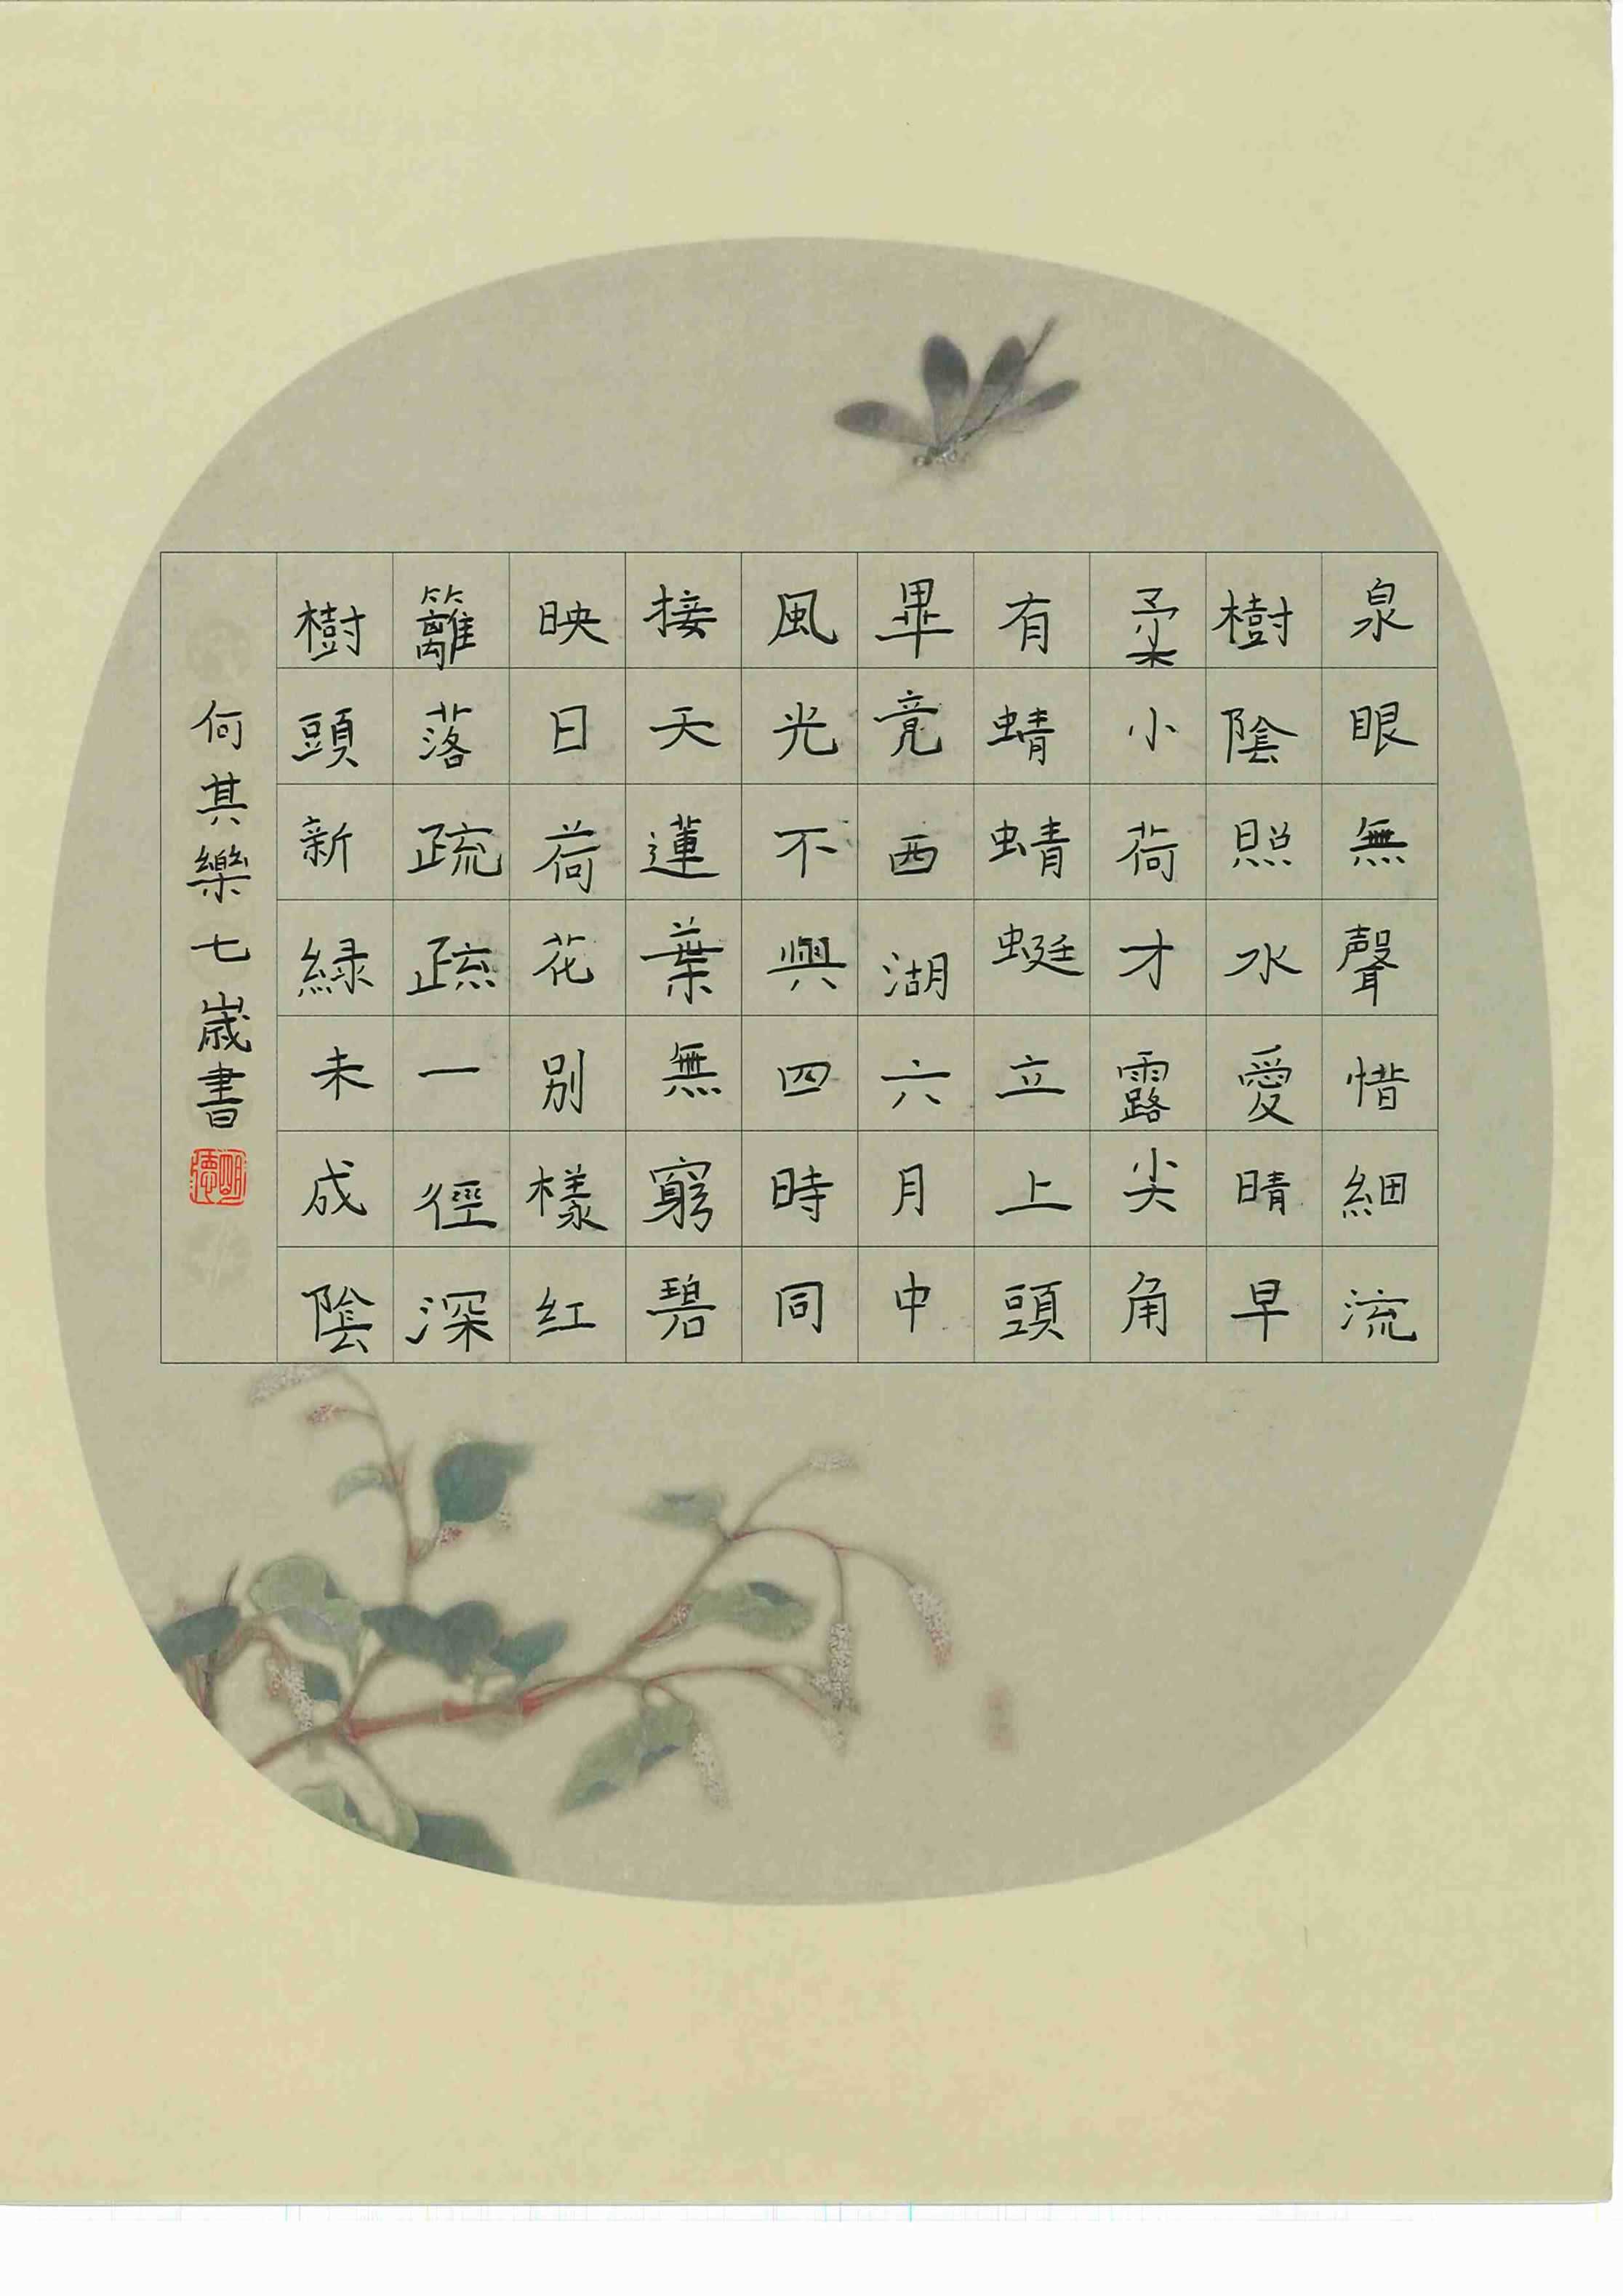 泉眼無聲惜細流
樹陰照水愛晴早
柔小荷才露尖角
有蜻蜻蜓立上頭
畢竟西湖六月中
風光不與四時同
接天蓮葉無窮碧
映日荷花別樣红
籬落疏疏一徑深
樹頭新緑未成陰
何其樂七歲書
明德